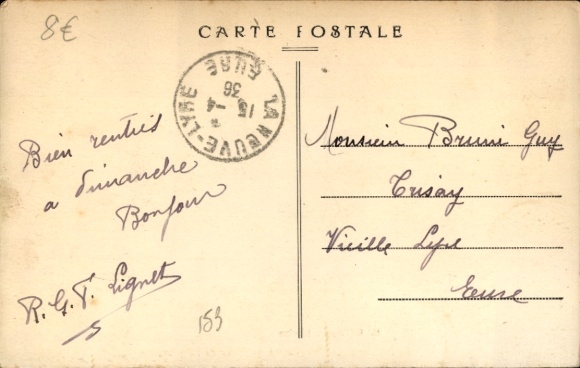 8€
CARTE POSTALE
LA NEUVE-LYRE
EURE
15 -4
36
Bien rentrés
a dimanche
Bonjour
R. G. F. Lignet
153
Monsieur Bruni Guy
Trisay
Vieille Lyre
Eure